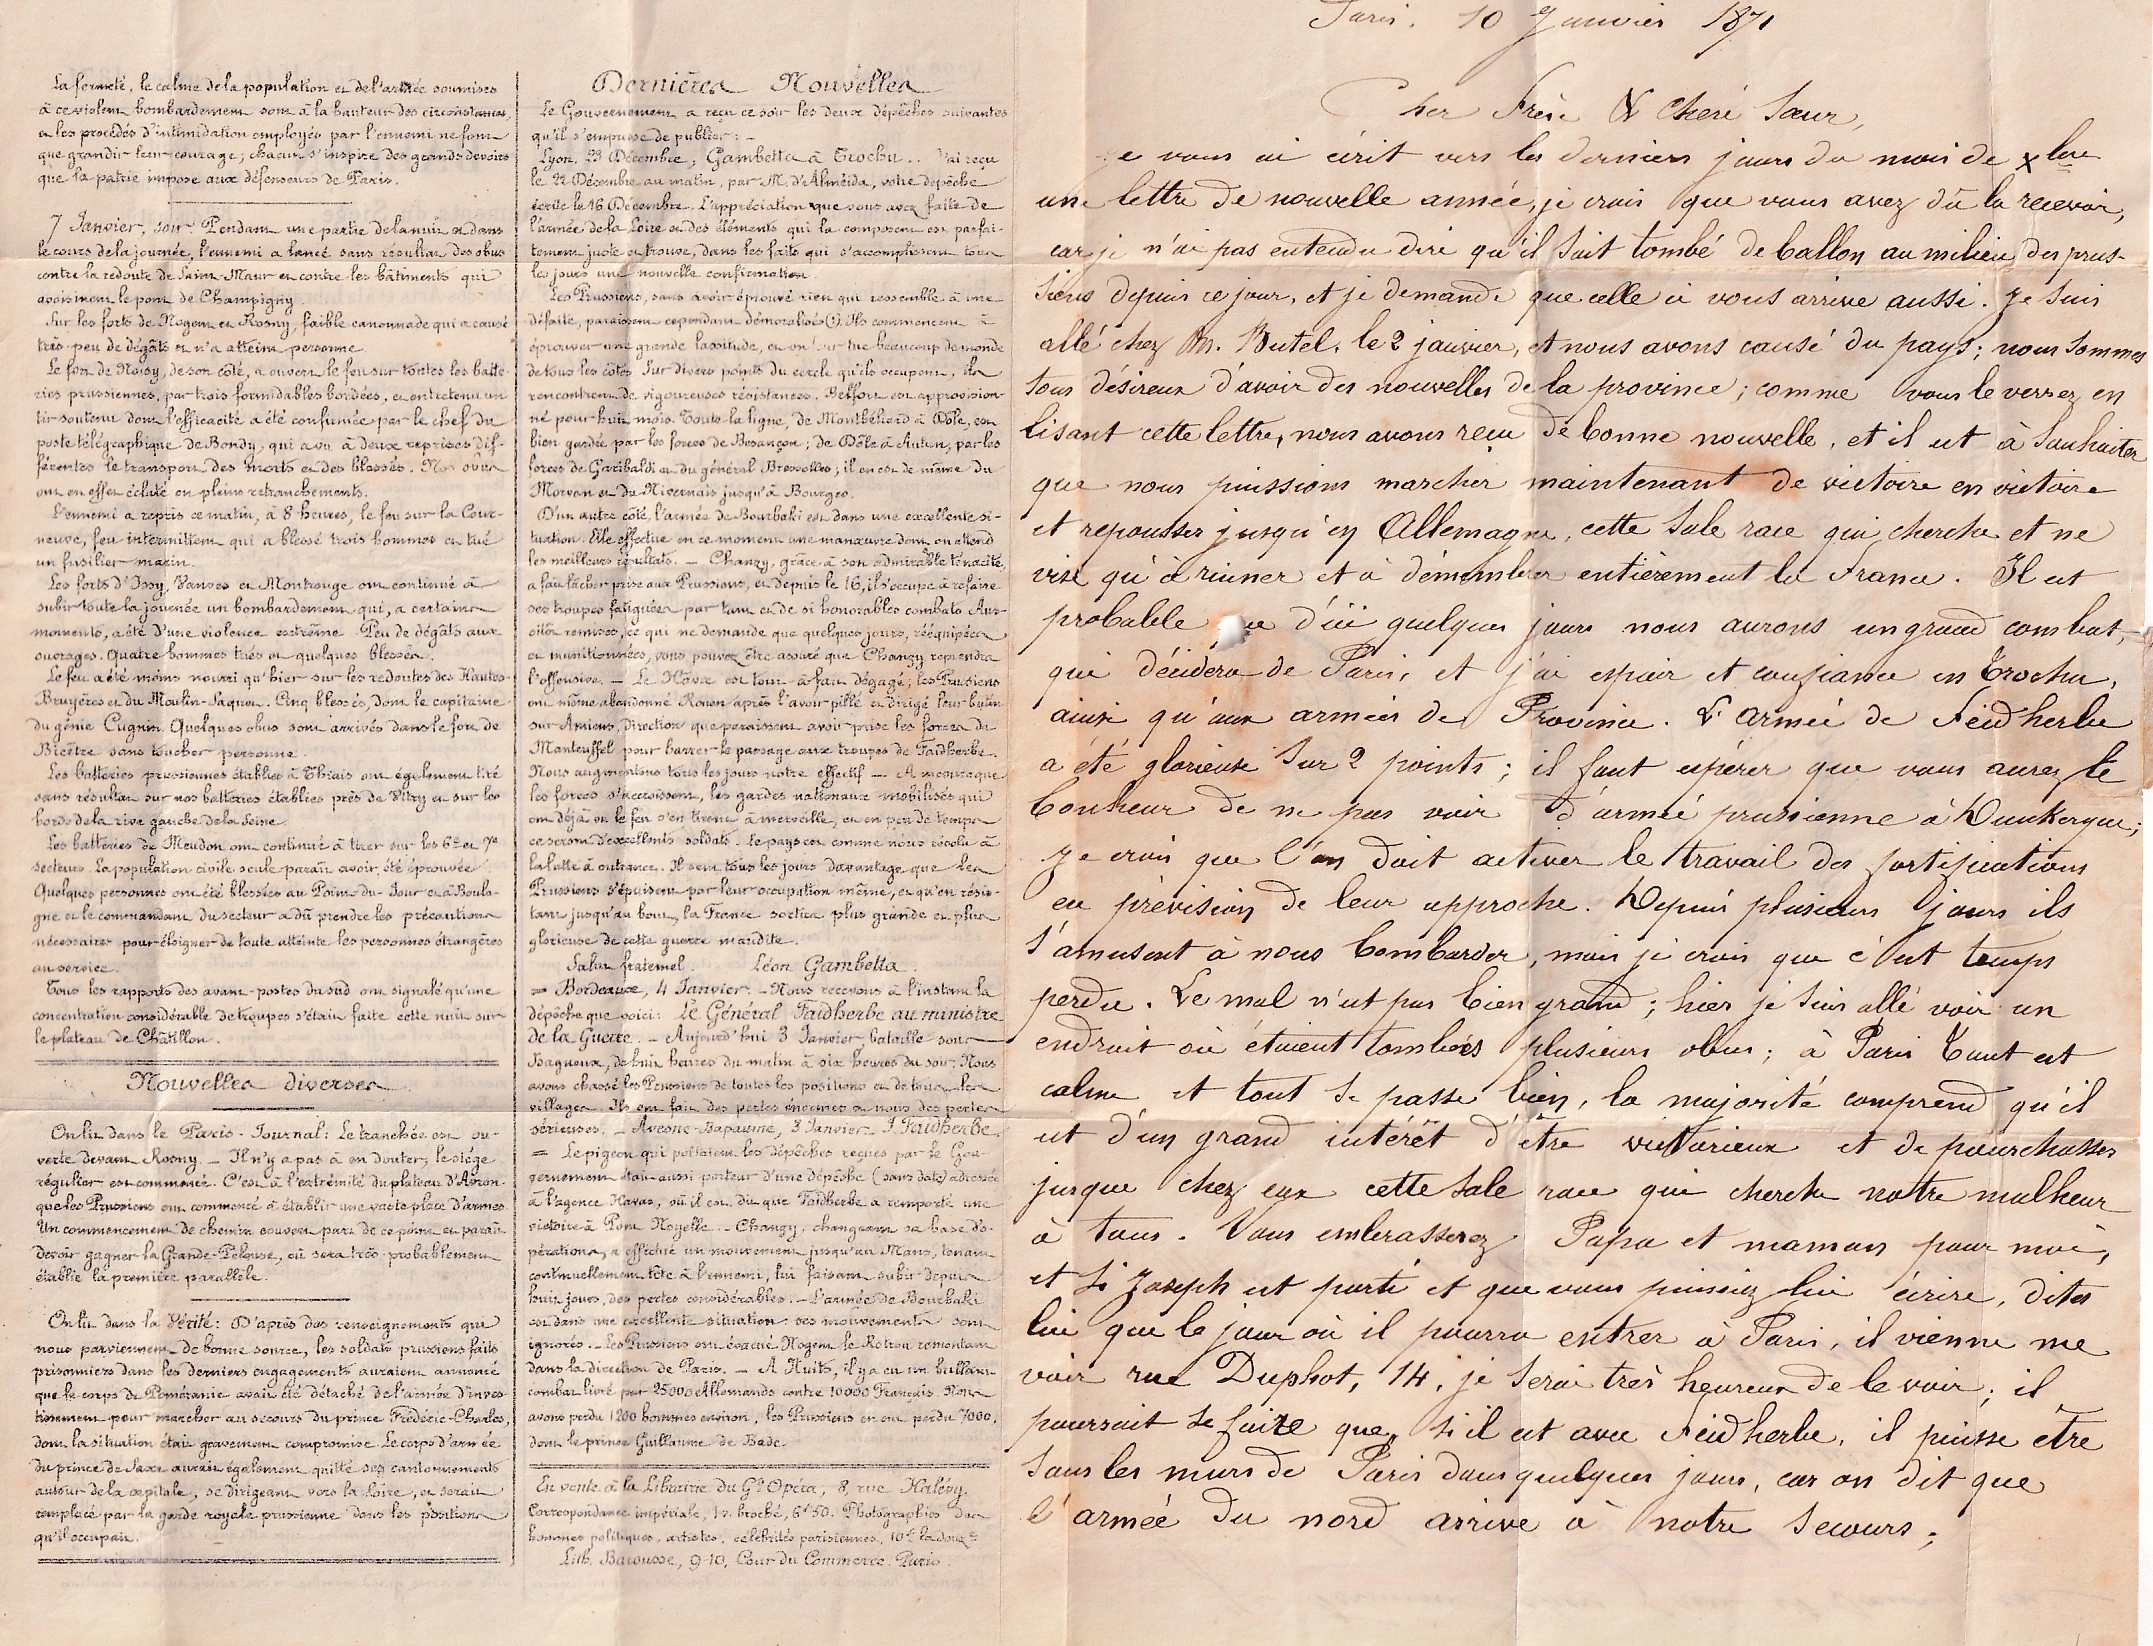 La fermeté, le calme de la population et de l'armée soumises
à ce violent bombardement sont à la hauteur des circonstances,
et les procédés d'intimidation employés par l'ennemi ne font
que grandir leur courage; chacun s'inspire des grands devoirs
que la patrie impose aux défenseurs de Paris.
7 Janvier, soir. Pendant une partie de la nuit et dans
le cours de la journée, l'ennemi a lancé sans résultat des obus
contre la redoute de Saint-Maur et contre les bâtiments qui
avoisinent le pont de Champigny.
Sur les forts de Nogent et Rosny, faible canonnade qui a causé
très-peu de dégâts et n'a atteint personne.
Le fort de Noisy, de son côté, a ouvert le feu sur toutes les batte-
ries prussiennes, par trois formidables bordées, et entretenu un
tir soutenu dont l'efficacité a été confirmée par le chef du
poste télégraphique de Bondy, qui a vu à deux reprises dif-
férentes le transport des morts et des blessés. Nos obus
ont en effet éclaté en pleins retranchements.
L'ennemi a repris ce matin, à 8 heures, le feu sur la Cour-
neuve, feu intermittent qui a blessé trois hommes et tué
un fusilier marin.
Les forts d'Issy, Vanves et Montrouge ont continué à
subir toute la journée un bombardement qui, a certains
moments, a été d'une violence extrême. Peu de dégâts aux
ouvrages. Quatre hommes tués et quelques blessés.
Le feu a été moins nourri qu'hier sur les redoutes des Hautes-
Bruyères et du Moulin-Saquet. Cinq blessés, dont le capitaine
du génie Cugnin. Quelques obus sont arrivés dans le fort de
Bicêtre sans toucher personne.
Les batteries prussiennes établies à Thiais ont également tiré
sans résultat sur nos batteries établies près de Vitry et sur les
bords de la rive gauche de la Seine.
Les batteries de Meudon ont continué à tirer sur les 6e et 7e
secteurs. La population civile seule paraît avoir été éprouvée.
Quelques personnes ont été blessées au Point-du-Jour et à Boulo-
gne et le commandant du secteur a dû prendre les précautions
nécessaires pour éloigner de toute atteinte les personnes étrangères
au service.
Tous les rapports des avant-postes du sud ont signalé qu'une
concentration considérable de troupes s'était faite cette nuit sur
le plateau de Châtillon.
Nouvelles diverses
On lit dans le Paris-Journal: Le tranchée est ou-
verte devant Rosny. — Il n'y a pas à en douter, le siége
régulier est commencé. C'est à l'extrémité du plateau d'Avron
que les Prussiens ont commencé à établir une vaste place d'armes.
Un commencement de chemin couvert part de ce point et paraît
devoir gagner la Grande-Pelouse, où sera très-probablement
établie la première parallèle.
On lit dans la Vérité: D'après des renseignements qui
nous parviennent de bonne source, les soldats prussiens faits
prisonniers dans les derniers engagements auraient annoncé
que le corps de Poméranie avait été détaché de l'armée d'inves-
tissement pour marcher au secours du prince Frédéric-Charles,
dont la situation était gravement compromise. Le corps d'armée
du prince de Saxe aurait également quitté ses cantonnements
autour de la capitale, se dirigeant vers la Loire, et serait
remplacé par la garde royale prussienne dans les positions
qu'il occupait.
Dernières Nouvelles
Le Gouvernement a reçu ce soir les deux dépêches suivantes
qu'il s'empresse de publier: —
Lyon, 23 Décembre; Gambetta à Trochu.. J'ai reçu
le 22 Décembre au matin, par M. d'Alméida, votre dépêche
écrite le 16 Décembre. L'appréciation que vous avez faite de
l'armée de la Loire et des éléments qui la composent est parfai-
tement juste et trouve, dans les faits qui s'accomplissent tous
les jours une nouvelle confirmation.
Les Prussiens, sans avoir éprouvé rien qui ressemble à une
défaite, paraissent cependant démoralisés (?). Ils commencent à
éprouver une grande lassitude, et on leur tue beaucoup de monde
de tous les côtés. Sur divers points du cercle qu'ils occupent, ils
rencontrent de vigoureuses résistances. Belfort est approvision-
né pour huit mois. Toute la ligne, de Montbéliard à Dôle, est
bien gardée par les forces de Besançon; de Dôle à Autun, par les
forces de Garibaldi et du général Bressolles; il en est de même du
Morvan et du Nivernais jusqu'à Bourges.
D'un autre côté, l'armée de Bourbaki est dans une excellente si-
tuation. Elle effectue en ce moment une manœuvre dont on attend
les meilleurs résultats. — Chanzy, grâce à son admirable tenacité,
a fait lâcher prise aux Prussiens, et depuis le 16, il s'occupe à refaire
ses troupes fatiguées par tant et de si honorables combats. Aus-
sitôt remises, ce qui ne demande que quelques jours, rééquipées
et munitionnées, vous pouvez être assuré que Chanzy reprendra
l'offensive. — Le Hâvre est tout-à-fait dégagé; les Prussiens
ont même abandonné Rouen après l'avoir pillé et dirigé leur butin
sur Amiens, direction que paraissent avoir prise les forces de
Manteuffel pour barrer le passage aux troupes de Faidherbe.
Nous augmentons tous les jours notre effectif — A mesure que
les forces s'accroissent, les gardes nationaux mobilisés qui
ont déjà vu le feu s'en tirent à merveille, et en peu de temps
ce seront d'excellents soldats. Le pays est comme nous résolu à
la lutte à outrance. Il sent tous les jours davantage que les
Prussiens s'épuisent par leur occupation même, et qu'en résis-
tant jusqu'au bout, la France sortira plus grande et plus
glorieuse de cette guerre maudite.
Salut fraternel. Léon Gambetta.
= Bordeaux, 4 Janvier. — Nous recevons à l'instant la
dépêche que voici: Le Général Faidherbe au ministre
de la Guerre. — Aujourd'hui 3 Janvier, bataille sous
Bapaume, de huit heures du matin à six heures du soir. Nous
avons chassé les Prussiens de toutes les positions et de tous les
villages. Ils ont fait des pertes énormes et nous des pertes
sérieuses. — Avesne-Bapaume, 3 Janvier. J. Faidherbe.
= Le pigeon qui portaient les dépêches reçues par le Gou-
vernement était aussi porteur d'une dépêche (sans date) adressée
à l'agence Havas, où il est dit que Faidherbe a remporté une
victoire à Pont Noyelle. — Chanzy, changeant sa base d'o-
pérations, a effectué un mouvement jusqu'au Mans, tenant
continuellement tête à l'ennemi, lui faisant subir depuis
huit jours, des pertes considérables. — L'armée de Bourbaki
est dans une excellente situation: ses mouvements sont
ignorés. — Les Prussiens ont évacué Nogent le Rotrou remontant
dans la direction de Paris. — A Nuits, il y a eu un brillant
combat livré par 25000 Allemands contre 10000 Français. Nous
avons perdu 1200 hommes environ, les Prussiens en ont perdu 7000,
dont le prince Guillaume de Bade.
En vente à la Librairie du Gd Opéra, 8, rue Halévy.
Correspondance impériale, 1 v. broché, 6f 50. Photographies des
hommes politiques, artistes, célébrités parisiennes, 10f la douze
Lith. Barousse, 9-10, Cour du Commerce. Paris.
Paris. 10 Janvier 1871
Cher Frère & Cheré Sœur,
Je vous ai écrit vers les derniers jours du mois de xbre
une lettre de nouvelle année, je crois que vous avez dû la recevoir,
car je n'ai pas entendu dire qu'il soit tombé de ballon au milieu des prus-
siens depuis ce jour, et je demande que celle ci vous arrive aussi. Je suis
allé chez M. Butel, le 2 janvier, et nous avons causé du pays; nous sommes
tous désireux d'avoir des nouvelles de la province; comme vous le verrez en
lisant cette lettre, nous avons reçu de bonne nouvelle, et il est à souhaiter
que nous puissions marcher maintenant de victoire en victoire
et repousser jusqu'en Allemagne, cette sale race qui cherche et ne
vise qu'à ruiner et à démembrer entièrement la France. Il est
probable que d'ici quelques jours nous aurons un grand combat,
qui décidera de Paris, et j'ai espoir et confiance en Trochu,
ainsi qu'aux armées de Province. L'armée de Feidherbe
a été glorieuse sur 2 points; il faut espérer que vous aurez le
bonheur de ne pas voir d'armée prussienne à Dunkerque;
Je crois que l'on doit activer le travail des fortifications
en prévision de leur approche. Depuis plusieurs jours ils
s'amusent à nous bombarder, mais je crois que c'est temps
perdu. Le mal n'est pas bien grand; hier je suis allé voir un
endroit où étaient tombés plusieurs obus; à Paris tout est
calme et tout se passe bien, la majorité comprend qu'il
est d'un grand intérêt d'être victorieux et de pourchasser
jusque chez eux cette sale race qui cherche notre malheur
à tous. Vous embrasserez Papa et maman pour moi,
et si Joseph est parti et que vous puissiez lui écrire, dites
lui que le jour où il pourra entrer à Paris, il vienne me
voir rue Duphot, 14, je serai très heureux de le voir; il
pourrait se faire que, si il est avec Feidherbe, il puisse être
sous les murs de Paris dans quelques jours, car on dit que
l'armée du nord arrive à notre secours;